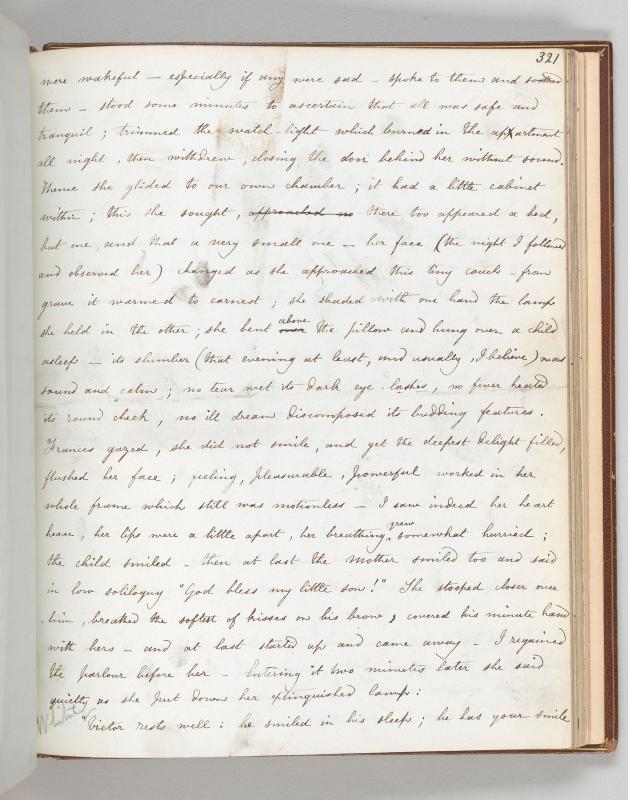 321
were wakeful — especially if any were sad — spoke to them and soothed
them — stood some minutes to ascertain that all was safe and
tranquil ; trimmed the watch-light which burned in the apartment
all night , then withdrew , closing the door behind her without sound.
Thence she glided to our own chamber ; it had a little cabinet
within ; this she sought , approached no there too appeared a bed,
but one , and that a very small one — her face (the night I followed
and observed her) changed as she approached this tiny couch — from
grave it warmed to earnest ; she shaded with one hand the lamp
she held in the other ; she bent over above the pillow and hung over a child
asleep — its slumber (that evening at least, and usually , I believe) was
sound and calm ; no tear wet its dark eye-lashes , no fever heated
its round cheek , no ill dream discomposed its budding features .
Frances gazed , she did not smile, and yet the deepest delight filled,
flushed her face ; feeling, pleasurable , powerful worked in her
whole frame which still was motionless — I saw indeed her heart
heave , her lips were a little apart , her breathing grew somewhat hurried ;
the child smiled — then at last the mother smiled too and said
in low soliloquy "God bless my little son !" She stooped closer over
him , breathed the softest of kisses on his brow , covered his minute hand
with hers — and at last started up and came away — I regained
the parlour before her — Entering it two minutes later she said
quietly as she put down her extinguished lamp :
"Victor rests well : he smiled in his sleep ; he has your smile